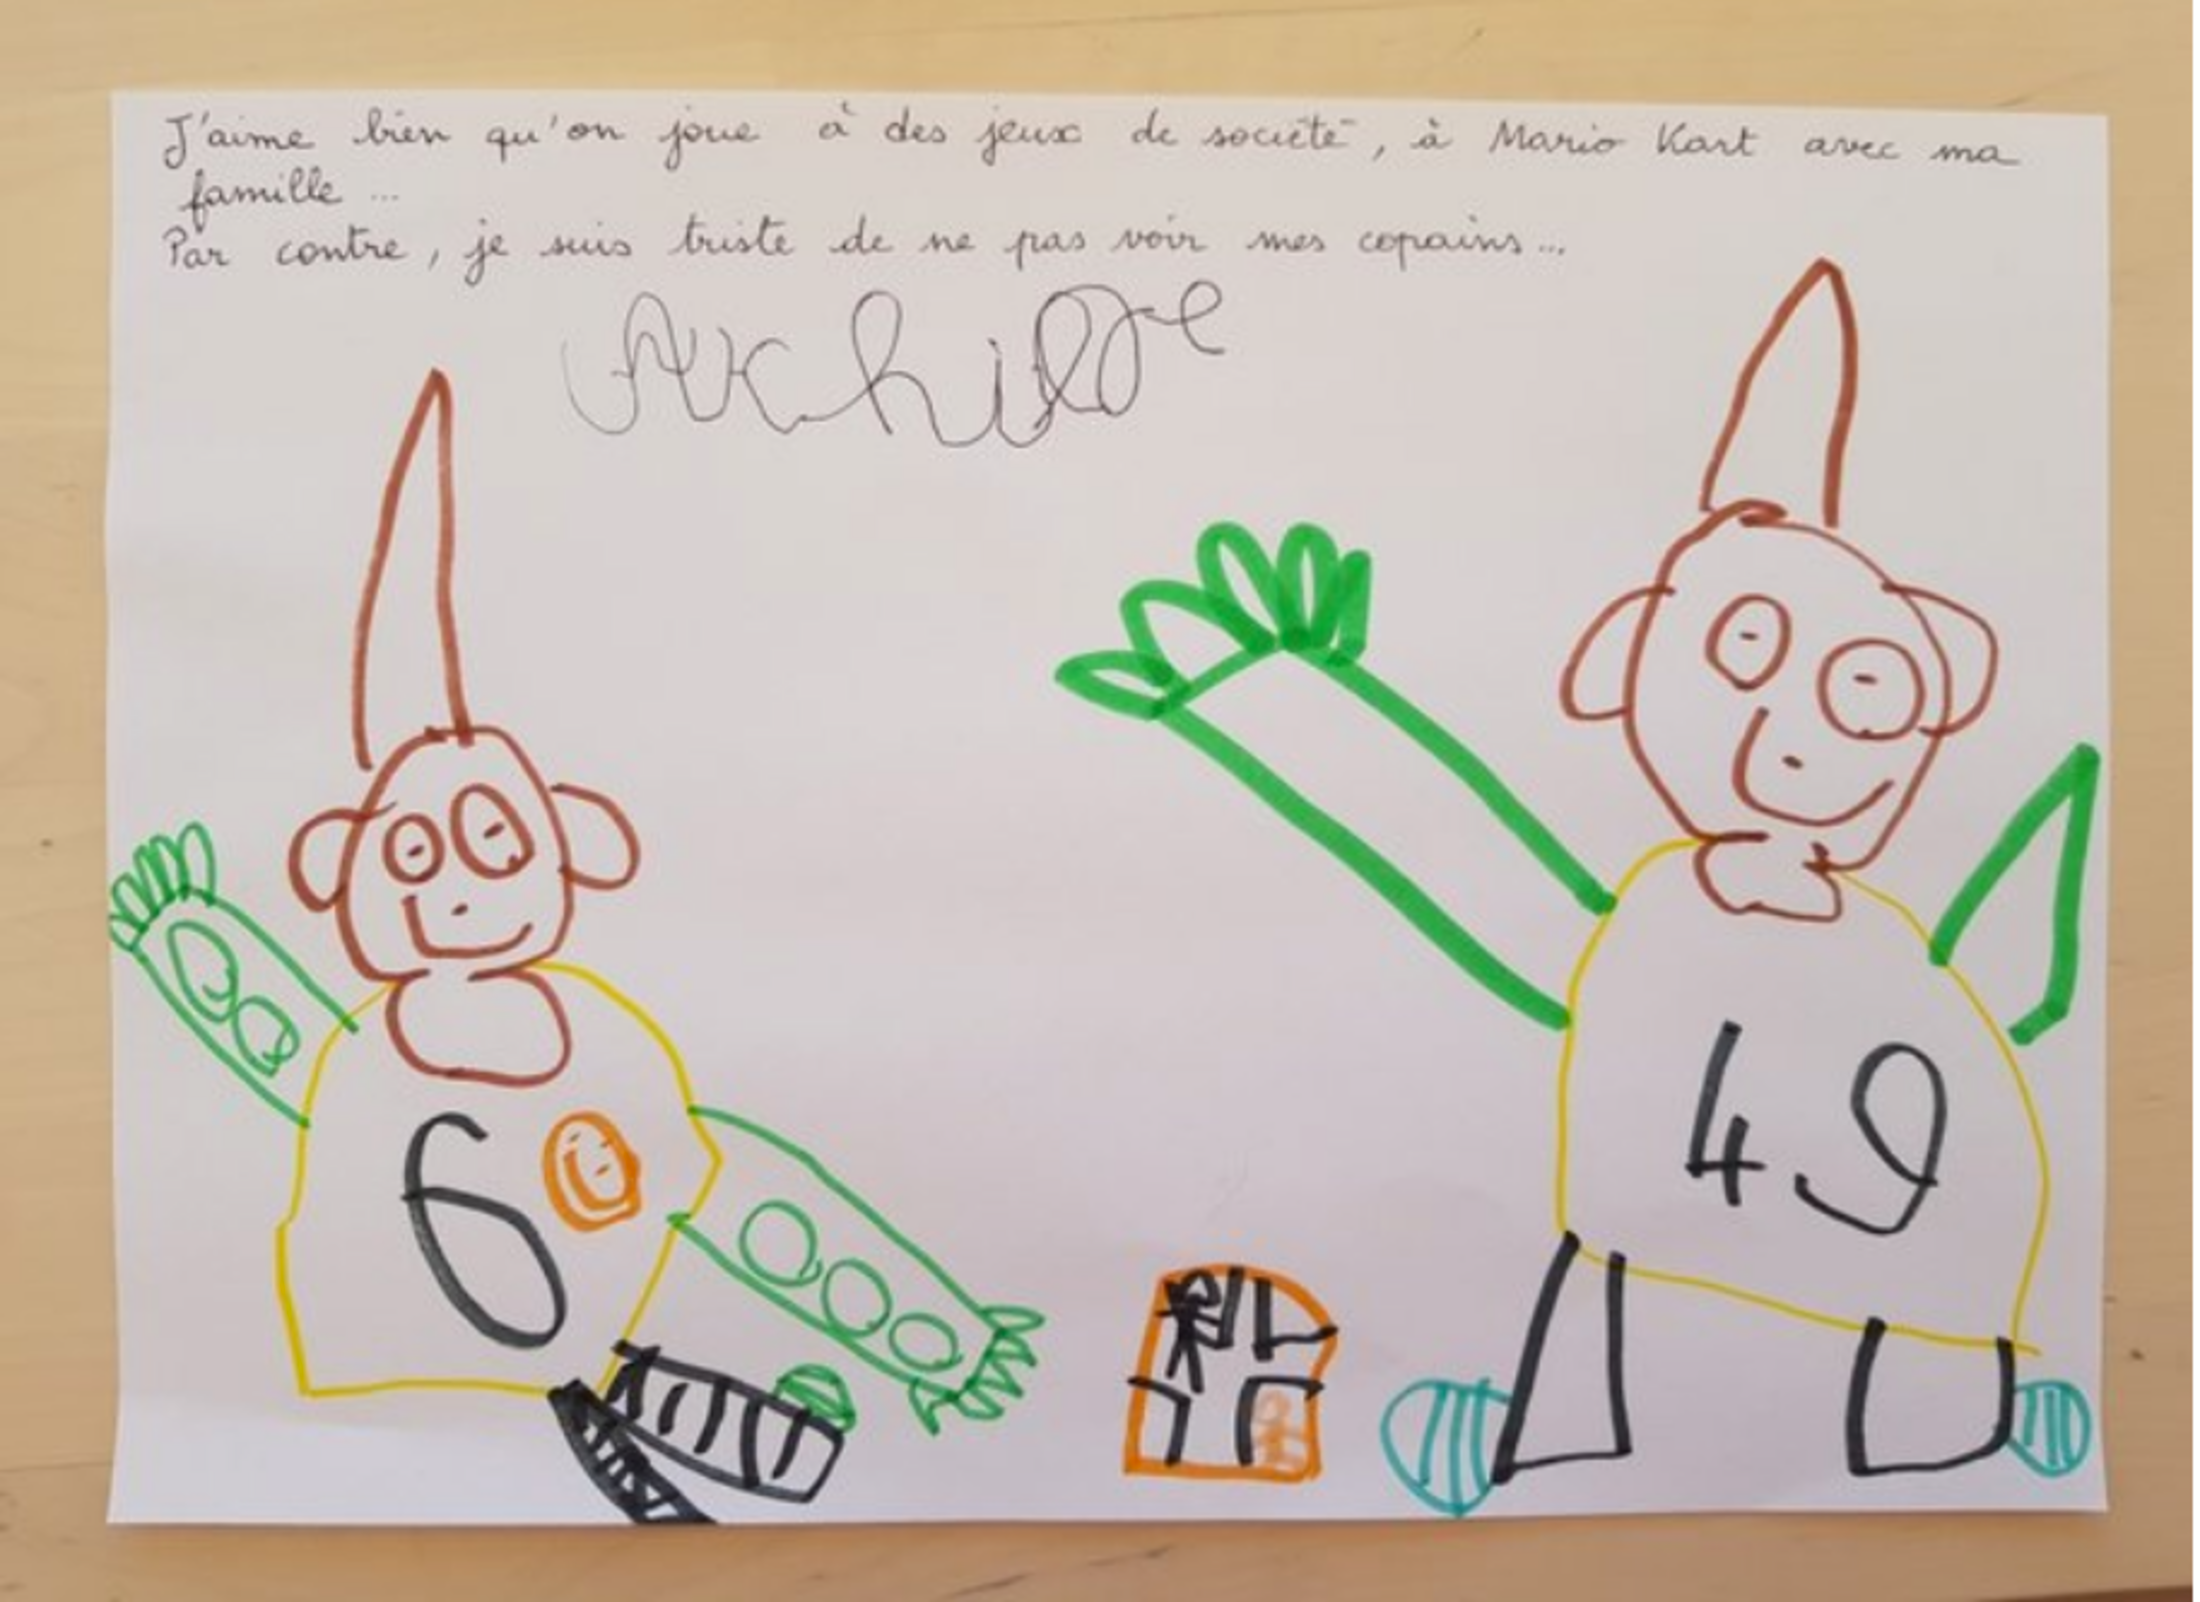 J'aime bien qu'on joue à des jeux de société, à Mario Kart avec ma
famille ...
Par contre, je suis triste de ne pas voir mes copains...
Achille
6
49